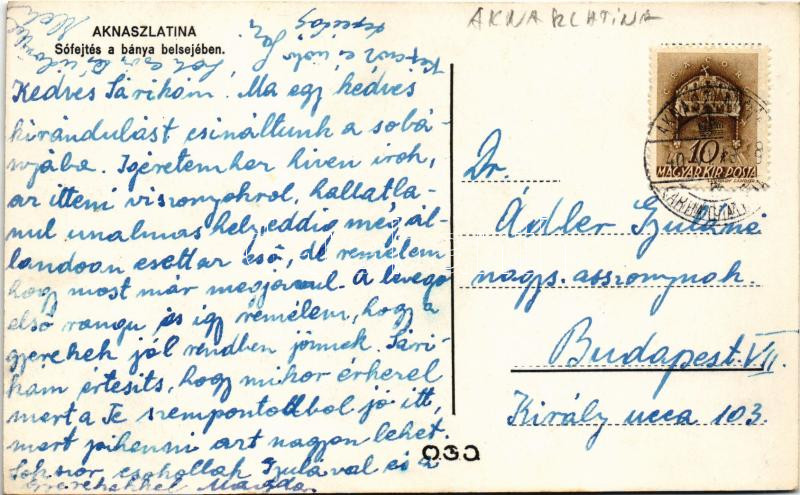 AKNASZLATINA
AKNASZLATINA
Sófejtés a bánya belsejében.
Kedves Sárikám. Ma egy kedves
kirándulást csináltunk a sobá-
nyába. Igéretemhez hiven irok,
az itteni viszonyokrol, hallatla-
nul unalmas hely, eddig még ál-
landoan esett az eső, de remélem
hogy most már megjavul. A levegő
első rangu és igy remélem, hogy a
gyerekek jól rendben jönnek. Sári-
kám értesits, hogy mikor érkezel
mert a Te szempontodbol jó itt,
mert pihenni azt nagyon lehet.
Sokszor csokollak Gyulával és a
gyerekekkel Magda.
10
MAGYAR KIR. POSTA
Dr.
Ádler Gyuláné
nagys. asszonynak.
Budapest. VII.
Király ucca 103.
030